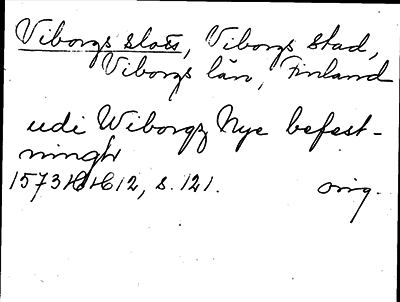 Viborgs slott, Viborgs stad,
Viborgs län, Finland
udi Wiborgz Nye befest-
ningh
1573 HH 12, s. 121. orig.